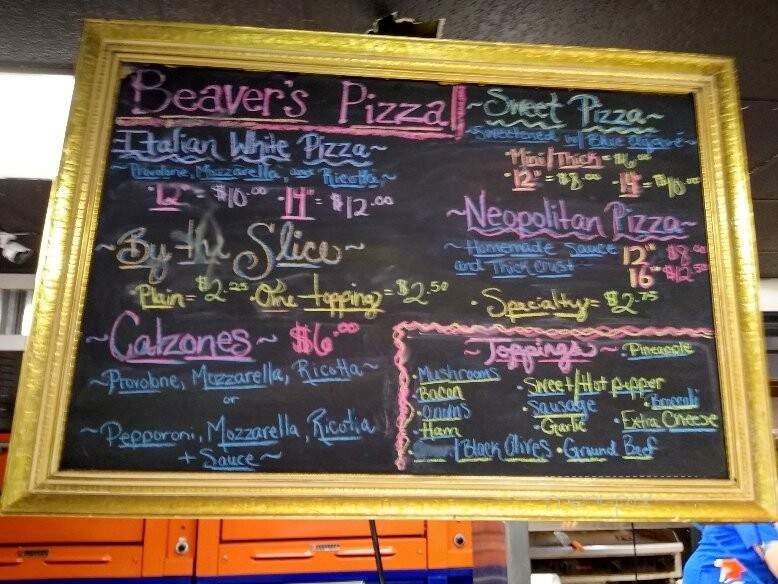 Beaver's Pizza
Italian White Pizza~
~Provolone, Mozzarella, and Ricotta,~
·12" = $10.00 ·14" = $12.00
~By the Slice~
·Plain = $2.25 ·One topping = $2.50
·Specialty = $2.75
~Calzones~ $6.00
~Provolone, Mozzarella, Ricotta~
or
~Pepporoni, Mozzarella, Ricotta
+ Sauce~
~Sweet Pizza~
~Sweetened w/
·Mini/Thick =
·12" = $8.00 ·14" = $10.00
~Neopolitan Pizza~
~Homemade Sauce 12" $8.00
and Thick crust~ 16" $12.50
~Toppings~ ·Pineapple
·Mushrooms
·Bacon ·Sweet/Hot pepper
·Onions ·Sausage ·Broccoli
·Ham ·Garlic ·Extra Cheese
Black Olives ·Ground Beef